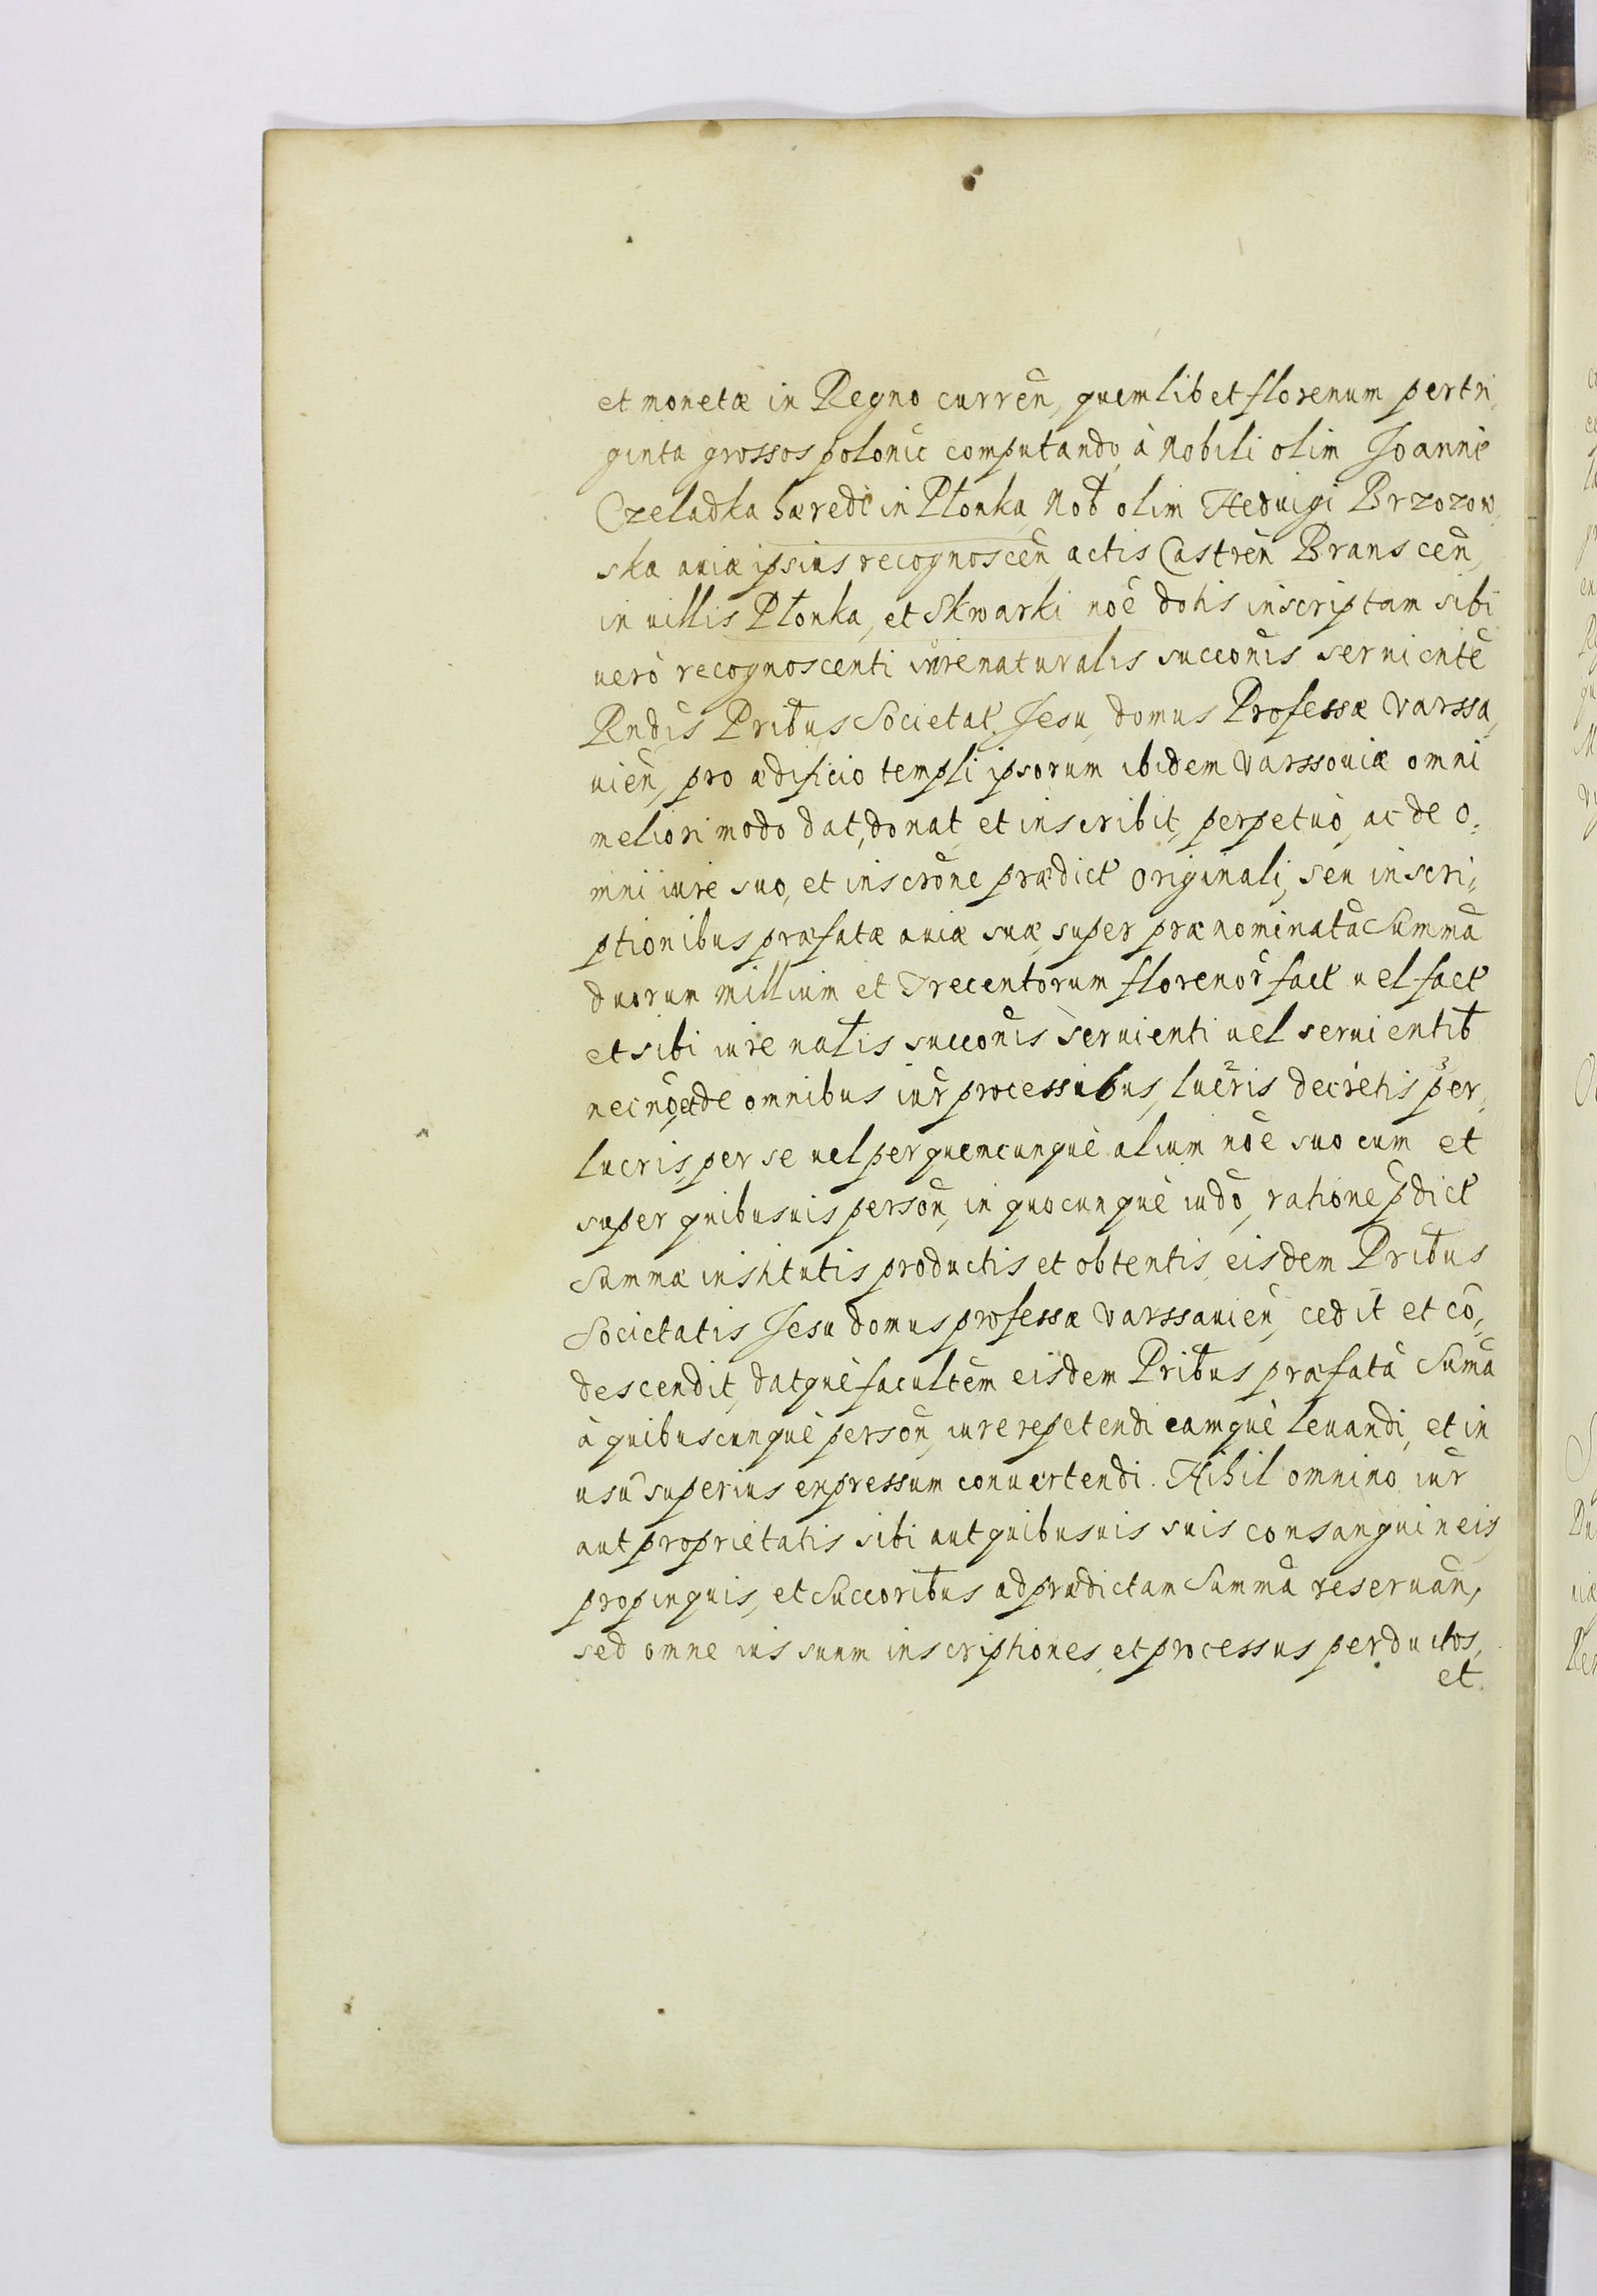 et monetæ in Regno curren̄, quemlibet florenum per tri,
ginta grossos polonic̄ computando, à Nobili olim Joanne
Czeladka hæredc̄ in Płonka, Nob̄ olim Hedvigi Brzozow,
ska auiæ ipsius recognoscen̄ actis Castren̄ Branscen̄,
in villis Płonka, et Skwarki noē dotis inscriptam sibi
uerò recognoscenti iure naturalis succōnis seruientē
Rndis Prib̄us Societat̄. Jesu, domus Professæ Varssa,
uien̄, pro ædificio templi ipsorum ibidem Varssouiæ omni
meliori modo dat, donat et inscribit, perpetuò, ac de o,
mni iure suo, et inscrōne prædict̄ originali, seu inscri,
ptionibus præfatæ auiæ suæ, super prænominatā Summā
duorum millium et Trecentorum florenor̄ fact̄ uel fact̄
et sibi iure nat̄lis succōnis seruienti uel seruientib̄
necnō et de omnibus iur̄ processibus, lucris decretis per,
lucris, per se uel per quemcunquè alium noē suo cum et
super quibusuis person̄, in quocunquè iudō, ratione p̄dict̄
Summæ institutis productis et obtentis, eisdem Prib̄us
Societatis Jesu domus professæ Varssauien̄, cedit et cō,
descendit, datquè facultēm eisdem Prib̄us præfatā Sumā
à quibuscunquè person̄, iure repetendi eamquè leuandi, et in
usū superius expressum conuertendi. Nihil omnino iur̄
aut proprietatis sibi aut quibusuis suis consanguineis,
propinquis, et Succorib̄us ad prædictam Summā reseruan̄,
sed omne ius suum inscriptiones, et processus perductos,
et